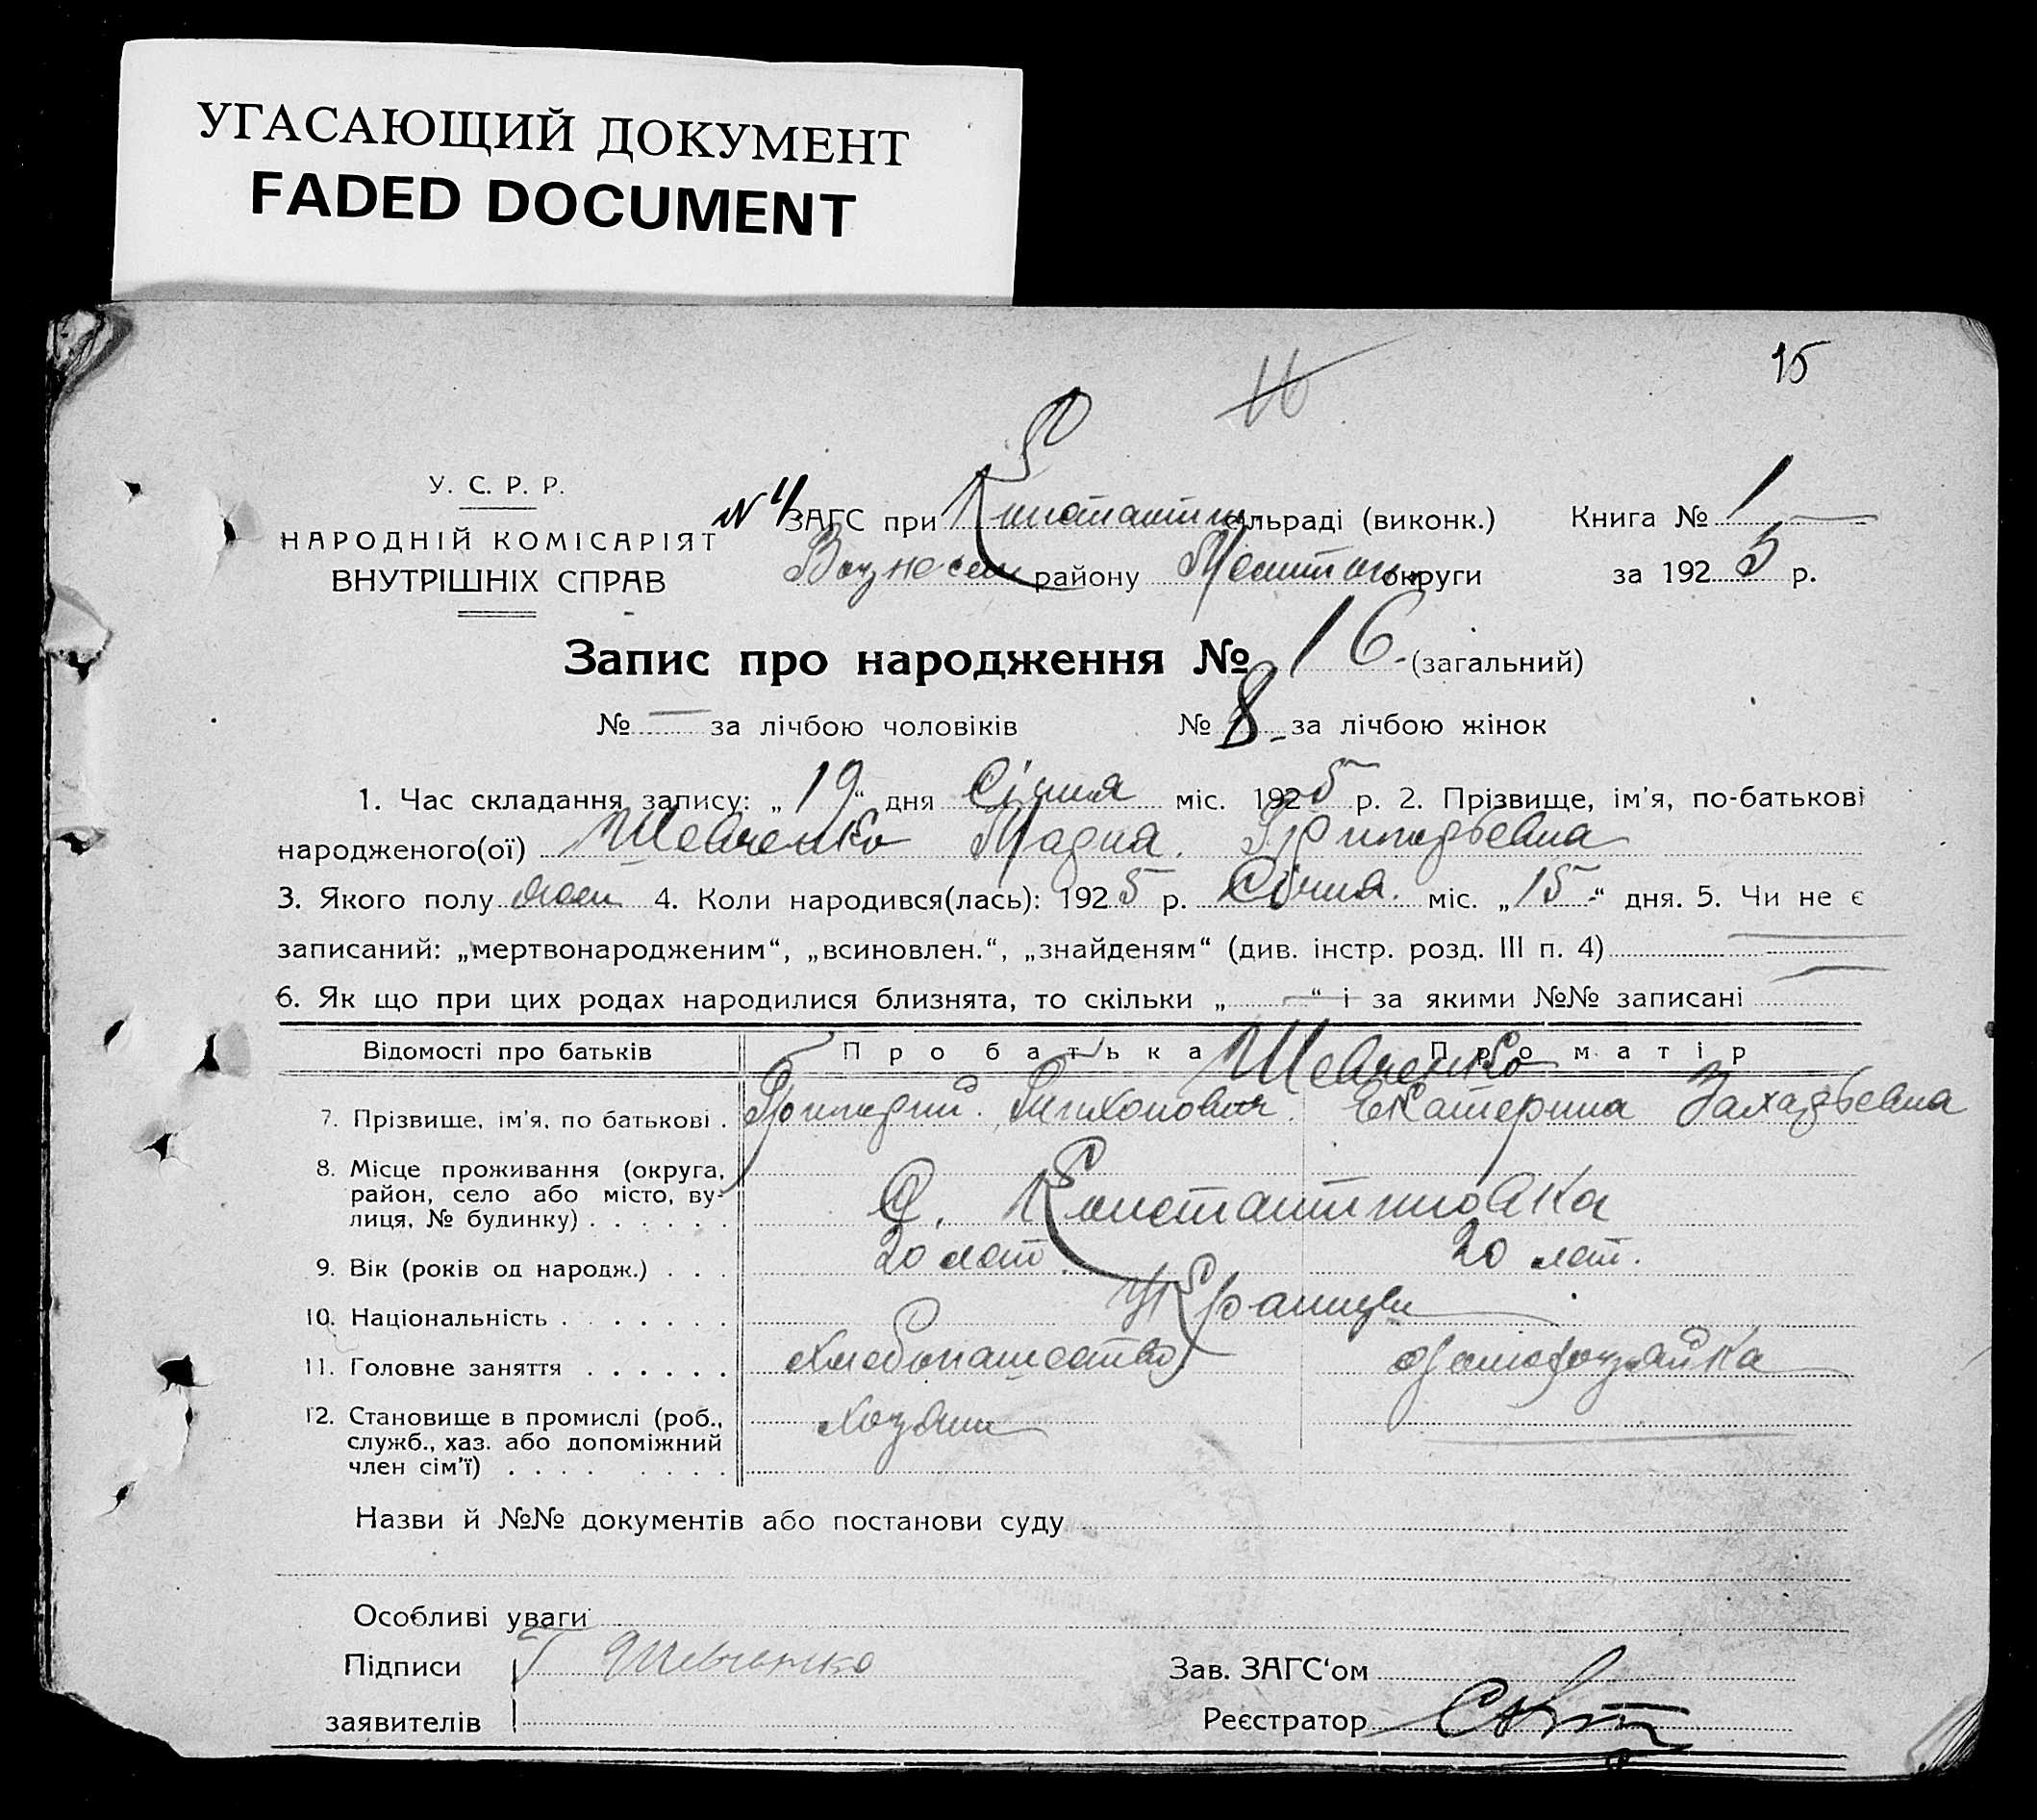 УГАСАЮЩИЙ ДОКУМЕНТ
FADED DOCUMENT
16
15
У. С. Р. Р.
НАРОДНІЙ КОМІСАРІЯТ
ВНУТРІШНІХ СПРАВ
ЗАГС при Константин. сільраді (виконк.) Книга № 1
Вознесен району округи за 1925 р.
Запис про народження № 16. (загальний)
№ — за лічбою чоловіків № 8 за лічбою жінок
1. Час складання запису: „19“ дня Січня міс. 1925 р. 2. Прізвище, ім'я, по-батькові
народженого(ої) Шевченко Мария Григорьевна
3. Якого полу жен 4. Коли народився(лась): 1925 р. Січня міс. „15“ дня. 5. Чи не є
записаний: „мертвонародженим“, „всиновлен.“, „знайденям“ (див. інстр. розд. III п. 4)
6. Як що при цих родах народилися близнята, то скільки „—“ і за якими №№ записані
Відомості про батьків Про батька Про матір
Шевченко
7. Прізвище, ім'я, по батькові . Григорий Тихонович Екатерина Захарьевна
8. Місце проживання (округа, район, село або місто, ву-
лиця, № будинку) С. Константиновка
9. Вік (років од народж.) . . . 20 лет 20 лет.
10. Національність . . . . . . . Украинцы
11. Головне заняття . . . . . . хлебопашество домохозяйка
12. Становище в промислі (роб., хозяин
служб., хаз. або допоміжний
член сім'ї)
Назви й №№ документів або постанови суду
Особливі уваги
Підписи Г Шевченко Зав. ЗАГС'ом
заявителів Реєстратор